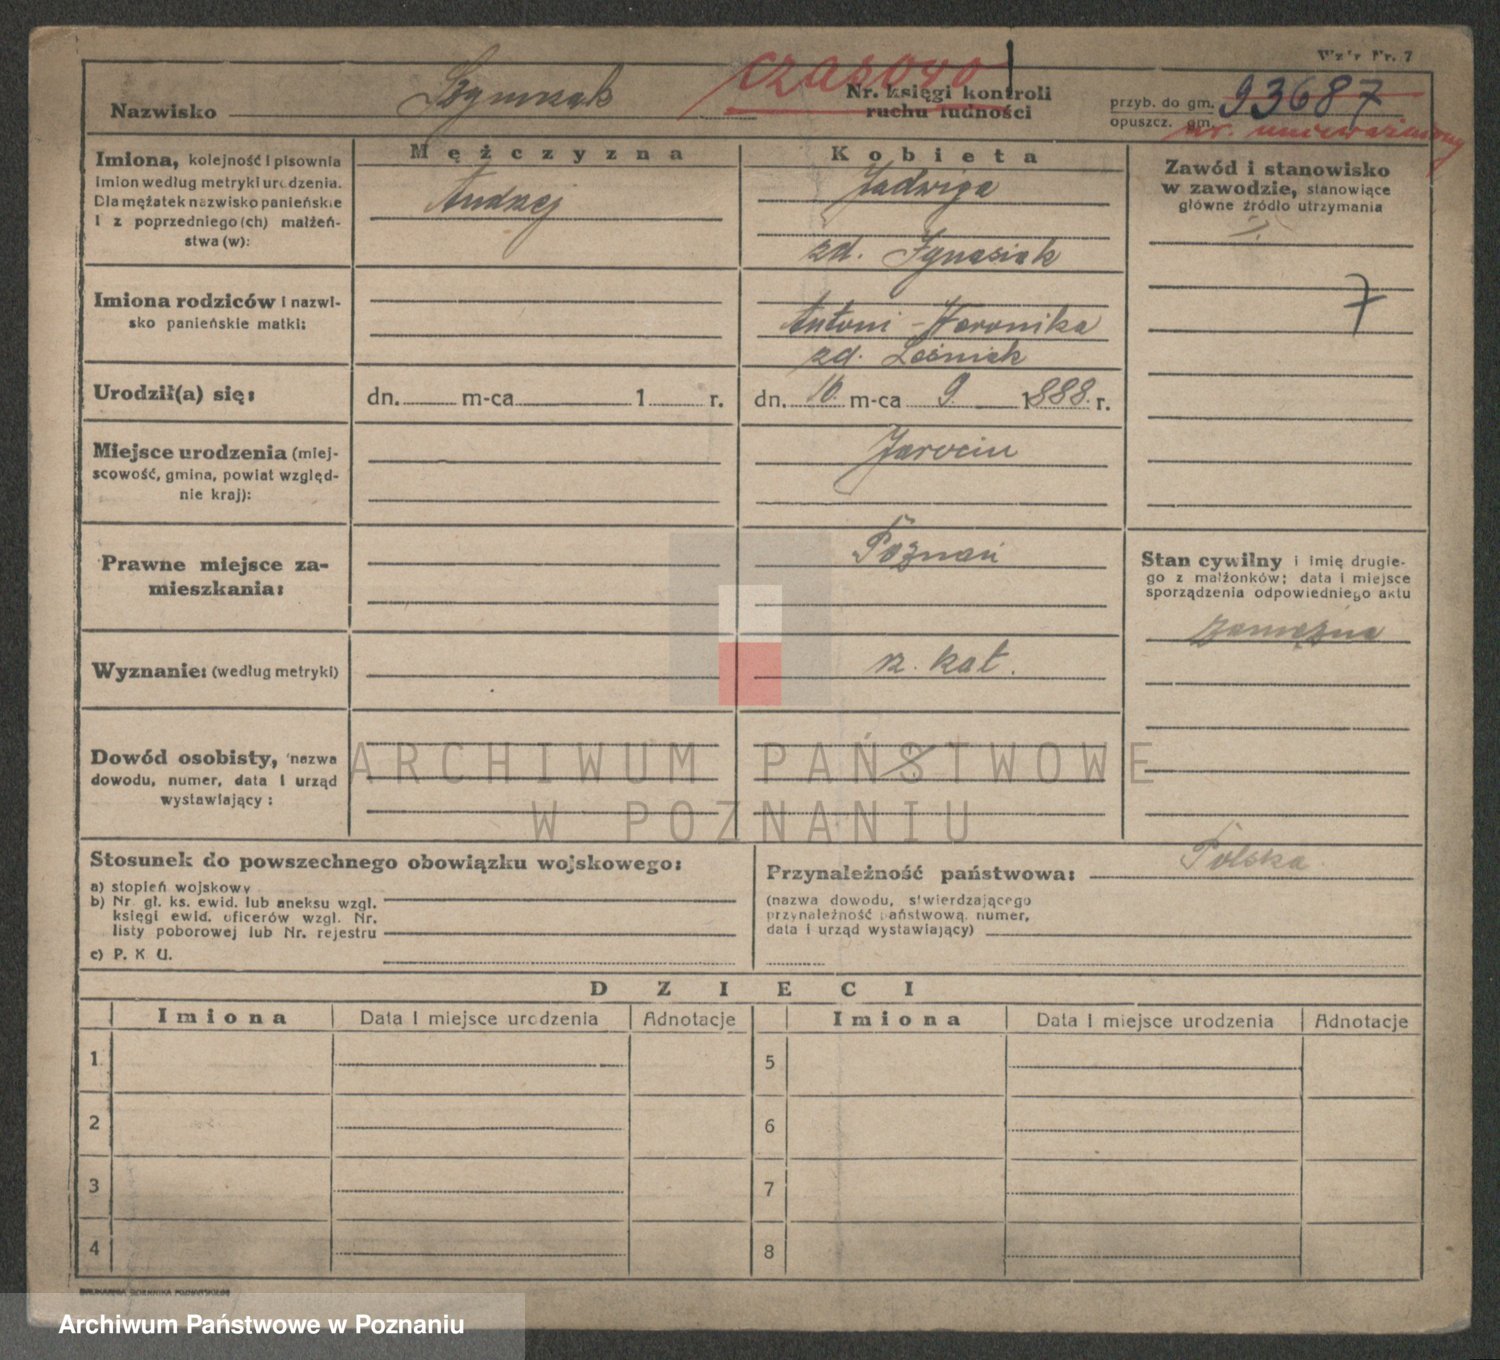 Wzór Nr. 7
czasowo
Nazwisko Szymczak
Nr. księgi kontroli
ruchu ludności
przyb. do gm. 93687
opuszcz. gm.
nr. unieważniony
Imiona, kolejność i pisownia
imion według metryki urodzenia.
Dla mężatek nazwisko panieńskie
i z poprzedniego (ch) małżeń-
stwa (w):
Mężczyzna
Andrzej
Kobieta
Jadwiga
zd. Ignasiak
Zawód i stanowisko
w zawodzie, stanowiące
główne źródło utrzymania
7
Imiona rodziców i nazwi-
sko panieńskie matki:
Antoni - Weronika
zd. Leśniak
Urodził(a) się:
dn. m-ca 1 r.
dn. 10. m-ca 9. 1888. r.
Miejsce urodzenia (miej-
scowość, gmina, powiat względ-
nie kraj):
Jarocin
Prawne miejsce za-
mieszkania:
Poznań
Stan cywilny i imię drugie-
go z małżonków; data i miejsce
sporządzenia odpowiedniego aktu
zamężna
Wyznanie: (według metryki)
rz. kat.
Dowód osobisty, nazwa
dowodu, numer, data i urząd
wystawiający:
ARCHIWUM PAŃSTWOWE
W POZNANIU
Stosunek do powszechnego obowiązku wojskowego:
a) stopień wojskowy
b) Nr gł. ks. ewid. lub aneksu wzgl.
księgi ewid. oficerów wzgl. Nr.
listy poborowej lub Nr. rejestru
c) P. K U.
Przynależność państwowa: Polska
(nazwa dowodu, stwierdzającego
przynależność państwową, numer,
data i urząd wystawiający)
DZIECI
Imiona Data i miejsce urodzenia Adnotacje Imiona Data i miejsce urodzenia Adnotacje
1 5
2 6
3 7
4 8
DRUKARNIA DZIENNIKA POZNAŃSKIEGO
Archiwum Państwowe w Poznaniu